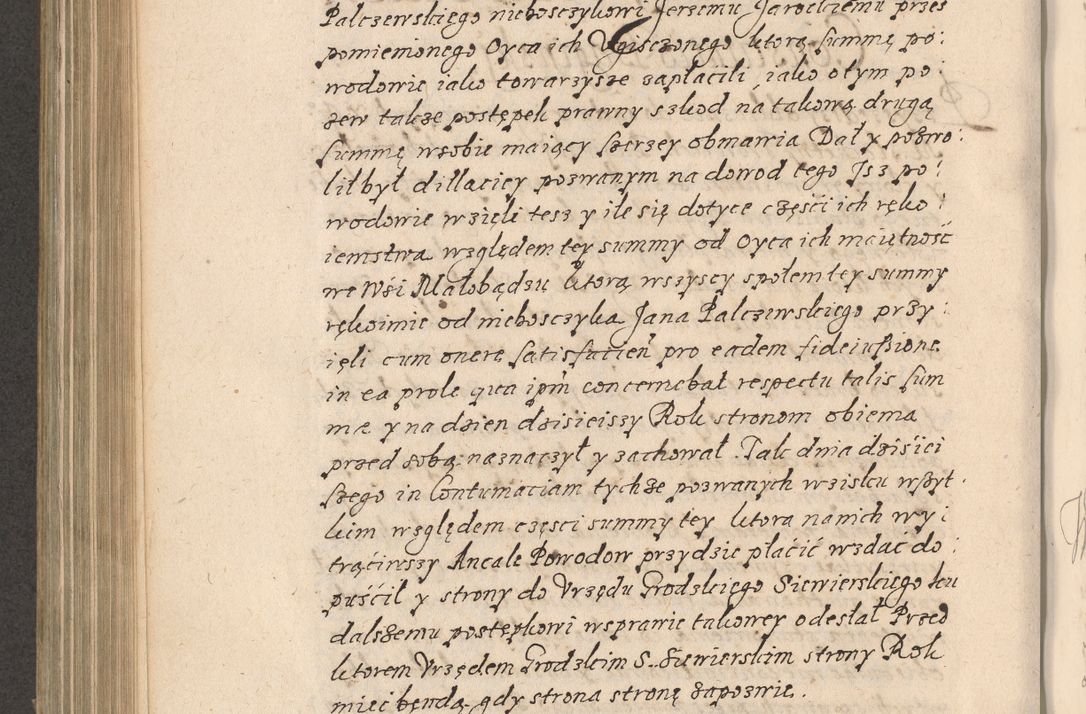 Palczewskięgo nieboszczykowi Jerzemu Jarockiemu przes
pomienionego Oyca ich Vgisczonego ktorą summę po:
wodowie iako towarzysze zapłacili, iako o tym po:
zew także postępek prawny szkod na takową drugą
summę w sobie maiący szerzey obmawia Dał y pozwo:
lił był dillaciey pozwanym na dowod tego Jsz po:
wodowie wzięli tesz y ile się dotyce części ich ręko:
iemstwa względem tey summy od Oyca ich maiętność
we Wśi Małobądzu ktorą wszyscy społem tey summy
rękoimie od nieboszczyka Jana Palczewskiego przy:
ięli cum onere satisfacień pro eadem fideiussione
in ea prole qua ipm̃ concernebat respectu talis sum
mæ y na dzien dzisieiszy Rok stronom obiema
przed sobą naznaczył y zachował. Tak dnia dziśiei
szego in Contumaciam tychże pozwanych w zisku wszyt
kim względem częsci summy tey ktora na nich wy:
trąciwszy Ancale Powodow przydzie płaćić wzdać do:
puśćił y strony do Vrzędu Grodzkięgo Siewierskięgo ku
dalszemu postępkowi w sprawie takowey odesłał Przed
ktorem Vrzędem Grodzkim S. Siewierskim strony Rok
mieć bendą, gdy strona stronę zapozwie.